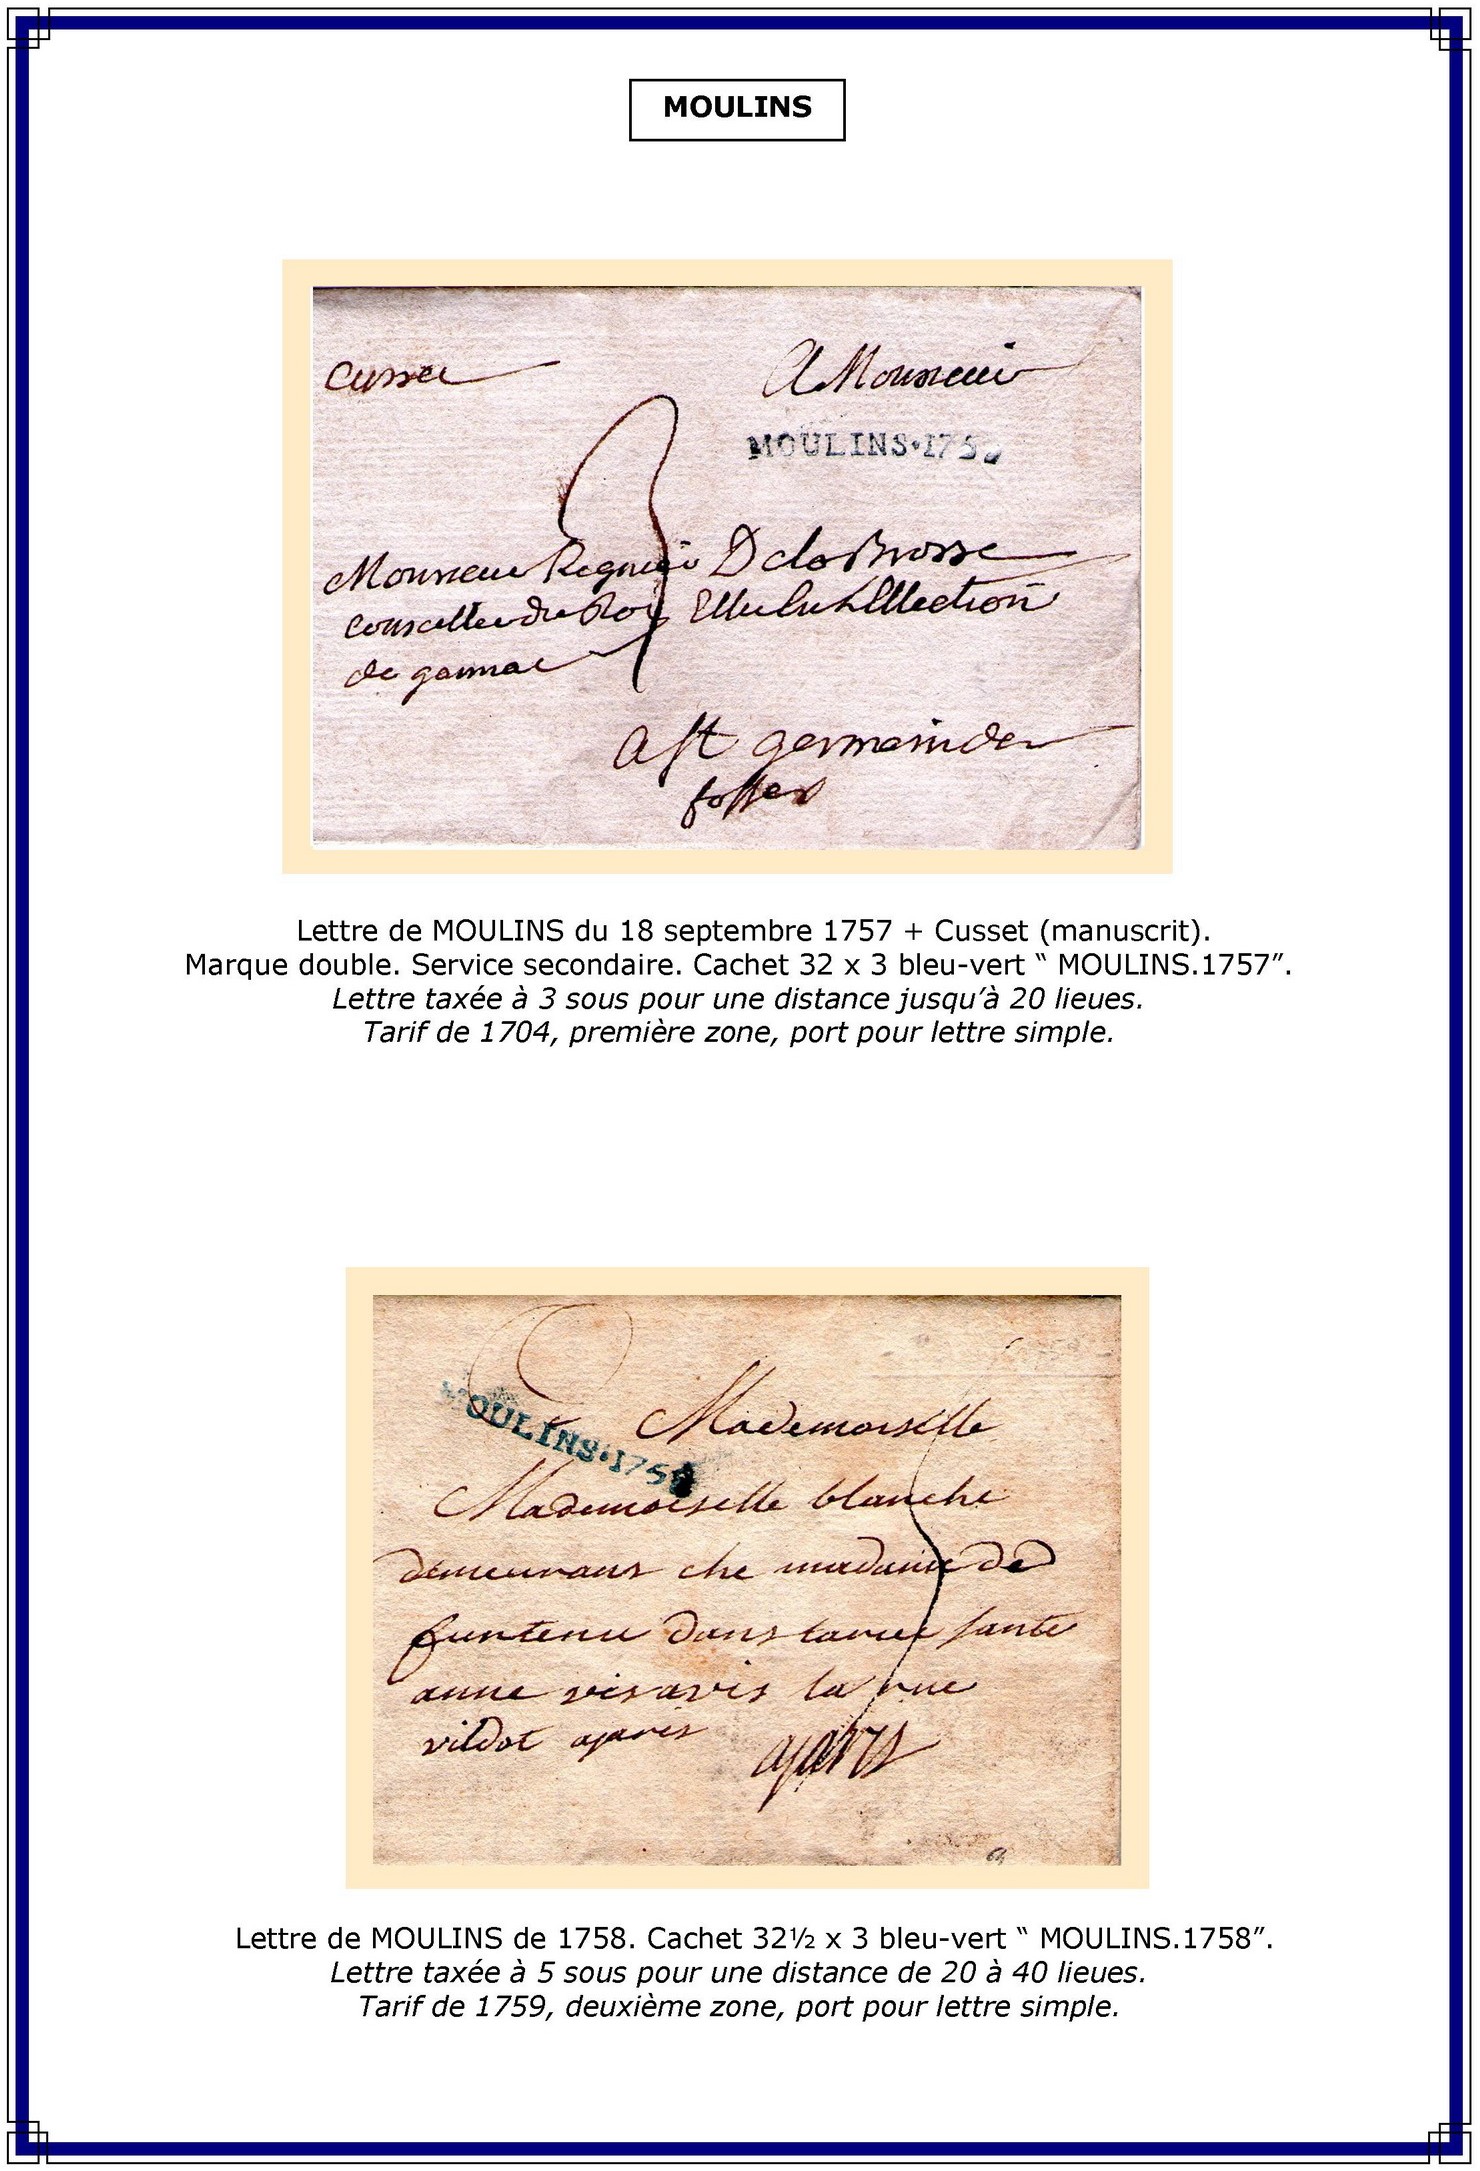 MOULINS
Cusset
A Monsieur
MOULINS•175
Monsieur Regnier Delabrosse
Conseiller du Roy
de gannat
A st germain der
fosser
Lettre de MOULINS du 18 septembre 1757 + Cusset (manuscrit).
Marque double. Service secondaire. Cachet 32 x 3 bleu-vert “ MOULINS.1757”.
Lettre taxée à 3 sous pour une distance jusqu’à 20 lieues.
Tarif de 1704, première zone, port pour lettre simple.
Mademoiselle
MOULINS•1758
Mademoiselle blanche
demeurans che madame de
funtenu dans la rue sante
anne vis avis la rue
vildot aparis aparis
Lettre de MOULINS de 1758. Cachet 32½ x 3 bleu-vert “ MOULINS.1758”.
Lettre taxée à 5 sous pour une distance de 20 à 40 lieues.
Tarif de 1759, deuxième zone, port pour lettre simple.